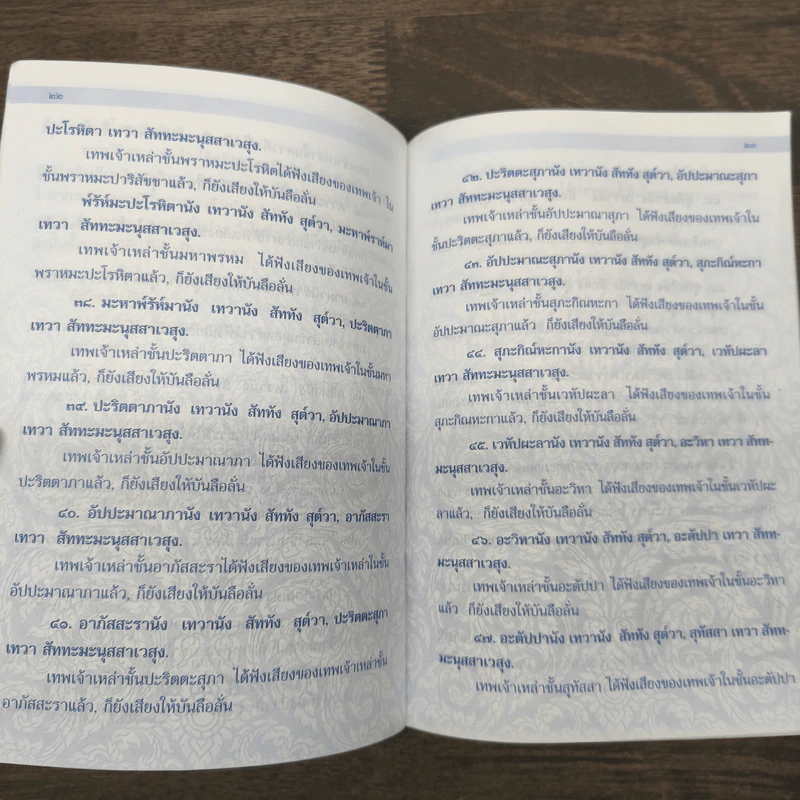 ๒๒
ปะโรหิตา เทวา สัททะมะนุสสาเวสุง.
เทพเจ้าเหล่าชั้นพราหมะปะโรหิตได้ฟังเสียงของเทพเจ้า ใน
ชั้นพราหมะปาริสัชชาแล้ว, ก็ยังเสียงให้บันลือลั่น
พ๎รัห๎มะปะโรหิตานัง เทวานัง สัททัง สุต๎วา, มะหาพ๎ราห๎มา
เทวา สัททะมะนุสสาเวสุง.
เทพเจ้าเหล่าชั้นมหาพรหม ได้ฟังเสียงของเทพเจ้าในชั้น
พราหมะปะโรหิตาแล้ว, ก็ยังเสียงให้บันลือลั่น
๓๘. มะหาพ๎รัห๎มานัง เทวานัง สัททัง สุต๎วา, ปะริตตาภา
เทวา สัททะมะนุสสาเวสุง.
เทพเจ้าเหล่าชั้นปะริตตาภา ได้ฟังเสียงของเทพเจ้าในชั้นมหา
พรหมแล้ว, ก็ยังเสียงให้บันลือลั่น
๓๙. ปะริตตาภานัง เทวานัง สัททัง สุต๎วา, อัปปะมาณาภา
เทวา สัททะมะนุสสาเวสุง.
เทพเจ้าเหล่าชั้นอัปปะมาณาภา ได้ฟังเสียงของเทพเจ้าในชั้น
ปะริตตาภาแล้ว, ก็ยังเสียงให้บันลือลั่น
๔๐. อัปปะมาณาภานัง เทวานัง สัททัง สุต๎วา, อาภัสสะรา
เทวา สัททะมะนุสสาเวสุง.
เทพเจ้าเหล่าชั้นอาภัสสะราได้ฟังเสียงของเทพเจ้าเหล่าในชั้น
อัปปะมาณาภาแล้ว, ก็ยังเสียงให้บันลือลั่น
๔๑. อาภัสสะรานัง เทวานัง สัททัง สุต๎วา, ปะริตตะสุภา
เทวา สัททะมะนุสสาเวสุง.
เทพเจ้าเหล่าชั้นปะริตตะสุภา ได้ฟังเสียงของเทพเจ้าเหล่าชั้น
อาภัสสะราแล้ว, ก็ยังเสียงให้บันลือลั่น
๒๓
๔๒. ปะริตตะสุภานัง เทวานัง สัททัง สุต๎วา, อัปปะมาณะสุภา
เทวา สัททะมะนุสสาเวสุง.
เทพเจ้าเหล่าชั้นอัปปะมาณาสุภา ได้ฟังเสียงของเทพเจ้าใน
ชั้นปะริตตะสุภาแล้ว, ก็ยังเสียงให้บันลือลั่น
๔๓. อัปปะมาณะสุภานัง เทวานัง สัททัง สุต๎วา, สุภะกิณ๎หะกา
เทวา สัททะมะนุสสาเวสุง.
เทพเจ้าเหล่าชั้นสุภะกิณหะกา ได้ฟังเสียงของเทพเจ้าในชั้น
อัปปะมาณะสุภาแล้ว ก็ยังเสียงให้บันลือลั่น
๔๔. สุภะกิณ๎หะกานัง เทวานัง สัททัง สุต๎วา, เวหัปผะลา
เทวา สัททะมะนุสสาเวสุง.
เทพเจ้าเหล่าชั้นเวหัปผะลา ได้ฟังเสียงของเทพเจ้าในชั้น
สุภะกิณหะกาแล้ว, ก็ยังเสียงให้บันลือลั่น
๔๕. เวหัปผะลานัง เทวานัง สัททัง สุต๎วา, อะวิหา เทวา สัทท-
มะนุสสาเวสุง.
เทพเจ้าเหล่าชั้นอะวิหา ได้ฟังเสียงของเทพเจ้าในชั้นเวหัปผะ
ลาแล้ว, ก็ยังเสียงให้บันลือลั่น
๔๖. อะวิหานัง เทวานัง สัททัง สุต๎วา, อะตัปปา เทวา สัทท-
มะนุสสาเวสุง.
เทพเจ้าเหล่าชั้นอะตัปปา ได้ฟังเสียงของเทพเจ้าในชั้นอะวิหา
แล้ว ก็ยังเสียงให้บันลือลั่น
๔๗. อะตัปปานัง เทวานัง สัททัง สุต๎วา, สุทัสสา เทวา สัทท-
มะนุสสาเวสุง.
เทพเจ้าเหล่าชั้นสุทัสสา ได้ฟังเสียงของเทพเจ้าในชั้นอะตัปปา